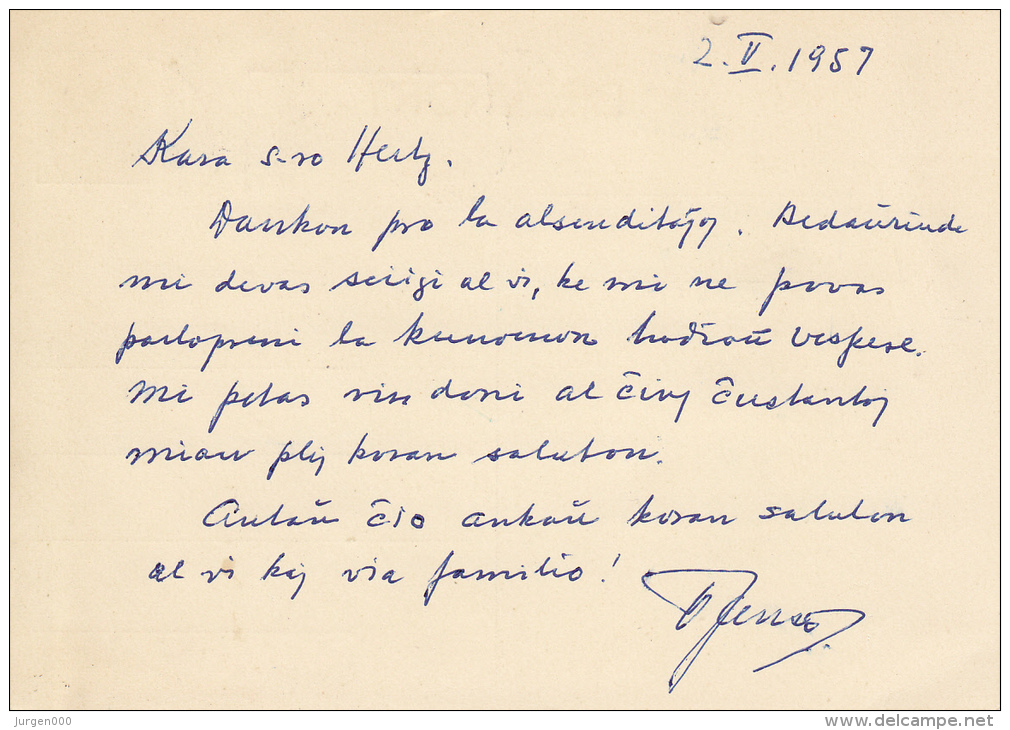 2.V.1957
Kara s-ro Hertz.
Dankon pro la alsenditaĵoj. Bedaŭrinde
mi devas sciigi al vi, ke mi ne povas
partopreni la kunvenon hodiaŭ vespere.
Mi petas vin doni al ĉiuj ĉeestantoj
mian plej koran saluton.
Antaŭ ĉio ankaŭ koran saluton
al vi kaj via familio!
Jurgen000
www.delcampe.net